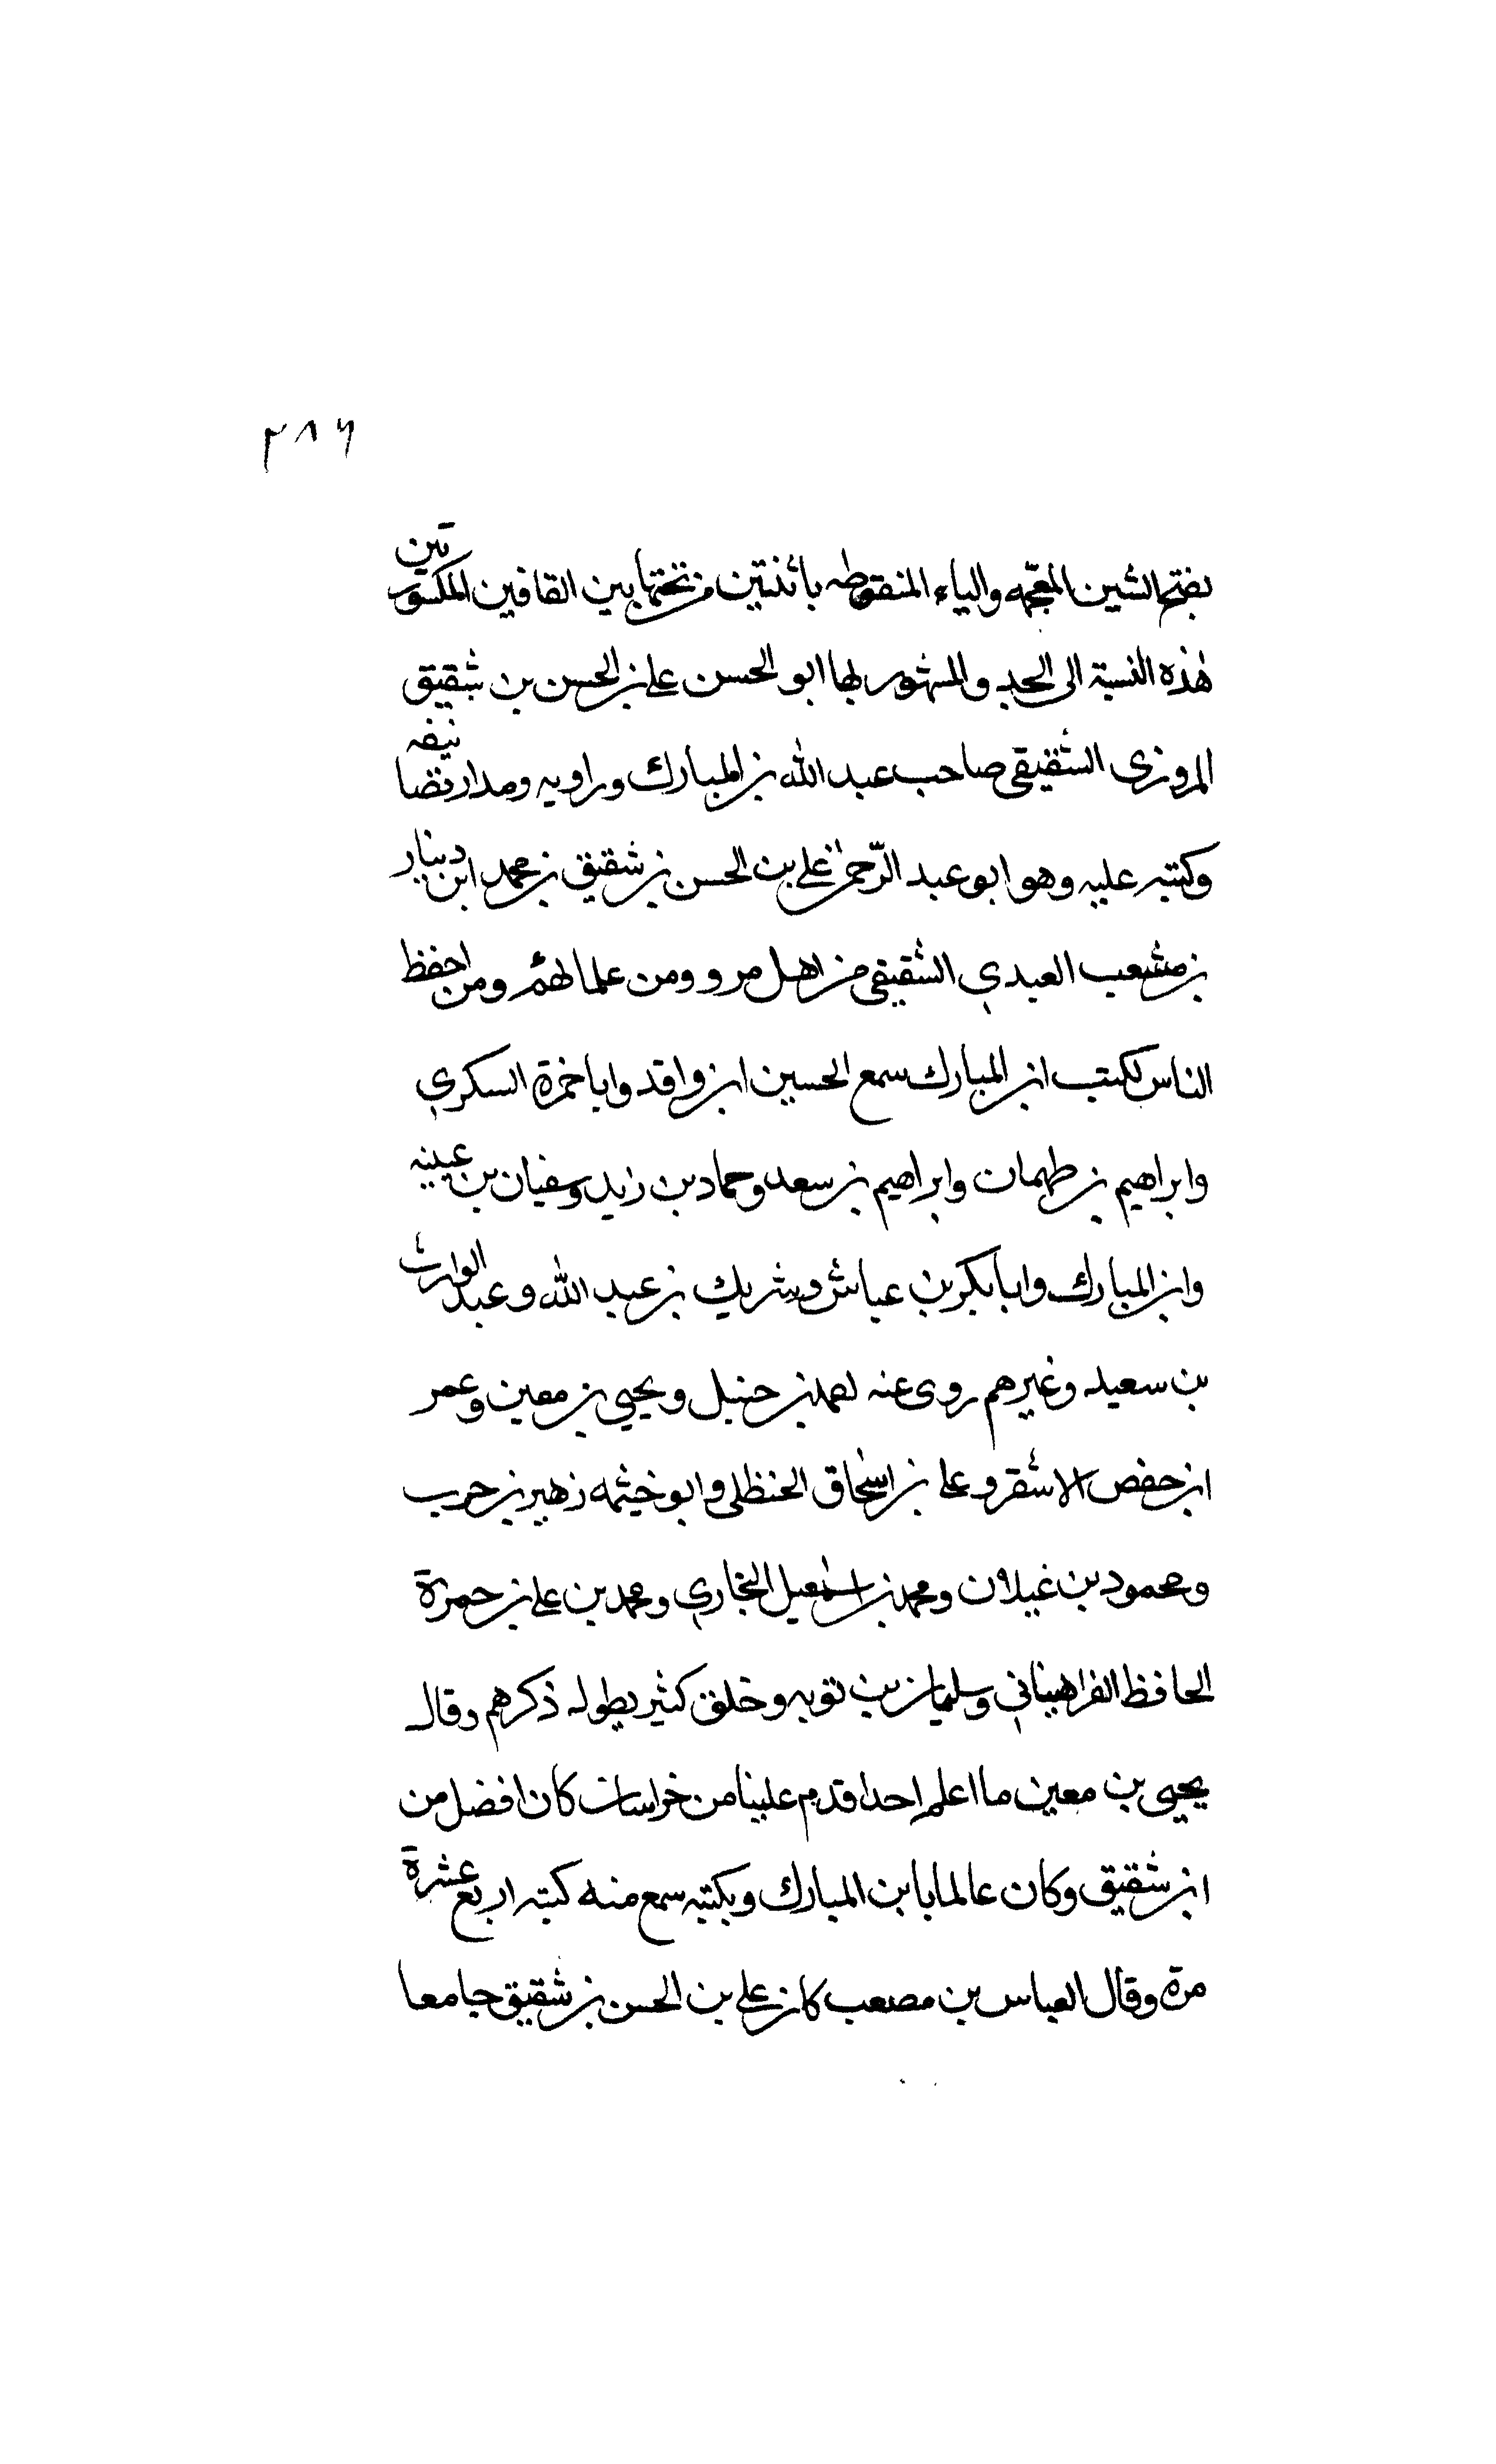 ٢٨٦
بفتح الشين المعجمه والياء المنقوطه باثنتين من تحتها بين القافين المكسورتين
هذه النسبة الى الجد والمشهور بها ابو الحسن على بن الحسن بن شقيق
المروزى الشقيقى صاحب عبد الله بن المبارك وراويه ومدار تصانيفه
وكتبه عليه وهو ابو عبد الرحمن على بن الحسن بن شقيق بن محمد ابن دينار
بن مشعب العبدي الشقيقى من اهل مرو ومن علمائهم ومن احفظ
الناس لكتب ابن المبارك سمع الحسين ابن واقد وابا حمزة السكري
وابراهيم بن طهمان وابراهيم بن سعد وحماد بن زيد وسفيان بن عيينه
وابن المبارك وابا بكر بن عياش وشريك بن عبد الله وعبد الوارث
بن سعيد وغيرهم روى عنه احمد بن حنبل ويحيى بن معين وعمر
ابن حفص الاشقر وعلى بن اسحاق الحنظلى وابو خيثمه زهير بن حرب
ومحمود بن غيلان ومحمد بن اسمعيل البخاري ومحمد بن على بن حمزة
الحافظ الفراهيناني وسليمان بن توبه وخلق كثير يطول ذكرهم وقال
يحيى بن معين ما اعلم احدا قدم علينا من خراسان كان افضل من
ابن شقيق وكان عالما بابن المبارك وبكتبه سمع منه كتبه اربع عشرة
مرة وقال العباس بن مصعب كان على بن الحسن بن شقيق جامعا